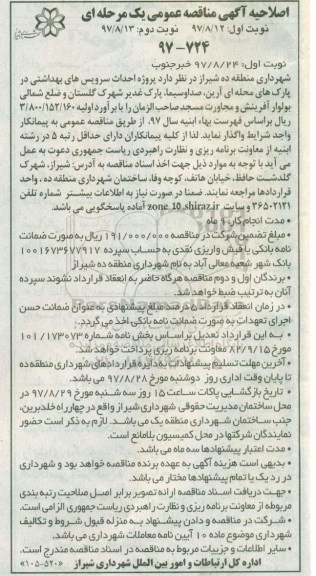 اصلاحیه آگهی مناقصه عمومی یک مرحله ای
نوبت اول: ۹۷/۸/۱۲ نوبت دوم: ۹۷/۸/۱۳
۹۷-۷۲۴
نوبت اول: ۹۷/۸/۲۴ خبرجنوب
شهرداری منطقه ده شیراز در نظر دارد پروژه احداث سرویس های بهداشتی در
پارک های محله ای آرین، صداوسیما، پارک غدیر شهرک گلستان و ضلع شمالی
بولوار آفرینش و مجاورت مسجد صاحب الزمان را با برآورد اولیه ۳/۸۰۰/۱۵۲/۱۶۰
ریال براساس فهرست بهاء ابنیه سال ۹۷، از طریق مناقصه عمومی به پیمانکار
واجد شرایط واگذار نماید. لذا از کلیه پیمانکاران دارای حداقل رتبه ۵ در رشته
ابنیه از معاونت برنامه ریزی و نظارت راهبردی ریاست جمهوری دعوت به عمل
می آید با توجه به موارد ذیل جهت اخذ اسناد مناقصه به آدرس: شیراز، شهرک
گلدشت حافظ، خیابان هاتف، کوچه وفا، ساختمان شهرداری منطقه ده، واحد
قراردادها مراجعه نمایند. ضمنا در صورت نیاز به اطلاعات بیشتر شماره تلفن
۳۶۵۰۲۱۲۱ و سایت zone 10.shiraz.ir آماده پاسخگویی می باشد.
• مدت انجام کار: ۶ ماه
• مبلغ تضمین شرکت در مناقصه ۱۹۱/۰۰۰/۰۰۰ ریال به صورت ضمانت
نامه بانکی یا فیش واریزی نقدی به حساب سپرده ۱۰۰۱۶۷۳۶۷۷۹۱۷
بانک شهر شعبه معالی آباد به نام شهرداری منطقه ده شیراز
• برندگان اول و دوم مناقصه هرگاه حاضر به انعقاد قرارداد نشوند سپرده
آنان به ترتیب ضبط خواهد شد.
• در زمان انعقاد قرارداد ۵ درصد مبلغ پیشنهادی به عنوان ضمانت حسن
اجرای تعهدات به صورت ضمانت نامه بانکی اخذ می گردد.
• به این قرارداد تعدیل براساس بخش نامه شماره ۱۰۱/۱۷۳۰۷۳
مورخ ۸۲/۹/۱۵ معاونت برنامه ریزی پرداخت خواهد شد.
• آخرین مهلت تسلیم پیشنهادات به دایره قراردادهای شهرداری منطقه ده
تا پایان وقت اداری روز دوشنبه مورخ ۹۷/۸/۲۸ می باشد.
• تاریخ بازگشایی پاکات ساعت ۱۵ روز سه شنبه مورخ ۹۷/۸/۲۹ در
محل ساختمان مدیریت حقوقی شهرداری شیراز و واقع در چهارراه خلدبرین،
جنب ساختمان شهرداری منطقه یک می باشد. لازم به ذکر است حضور
نمایندگان شرکتها در محل کمیسیون بلامانع است.
• مدت اعتبار پیشنهادها سه ماه می باشد.
• بدیهی است هزینه آگهی به عهده برنده مناقصه خواهد بود و شهرداری
در رد یک یا تمام پیشنهادها مختار می باشد.
• جهت دریافت اسناد مناقصه ارائه تصویر برابر اصل صلاحیت رتبه بندی
مربوطه از معاونت برنامه ریزی و نظارت راهبردی ریاست جمهوری الزامی است.
• شرکت در مناقصه و دادن پیشنهاد به منزله قبول شروط و تکالیف
شهرداری موضوع ماده ۱۰ آیین نامه معاملات شهرداری می باشد.
• سایر اطلاعات و جزییات مربوط به مناقصه در اسناد مناقصه مندرج است.
اداره کل ارتباطات و امور بین الملل شهرداری شیراز «۱۰۵-۵۲۰»